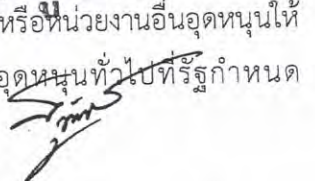 หรือหน่วยงานอื่นอุดหนุนให้
อุดหนุนทั่วไปที่รัฐกำหนด